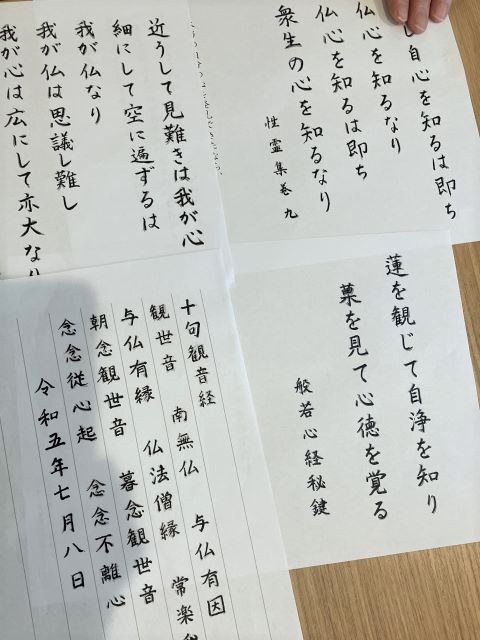 し自心を知るは即ち
仏心を知るなり
仏心を知るは即ち
衆生の心を知るなり
性霊集巻九
近うして見難きは我が心
細にして空に遍ずるは
我が仏なり
我が仏は思議し難し
我が心は広にして亦大なり
蓮を観じて自浄を知り
菓を見て心徳を覚る
般若心経秘鍵
十句観音経
観世音 南無仏 与仏有因
与仏有縁 仏法僧縁 常楽
朝念観世音 暮念観世音
念念従心起 念念不離心
令和五年七月八日